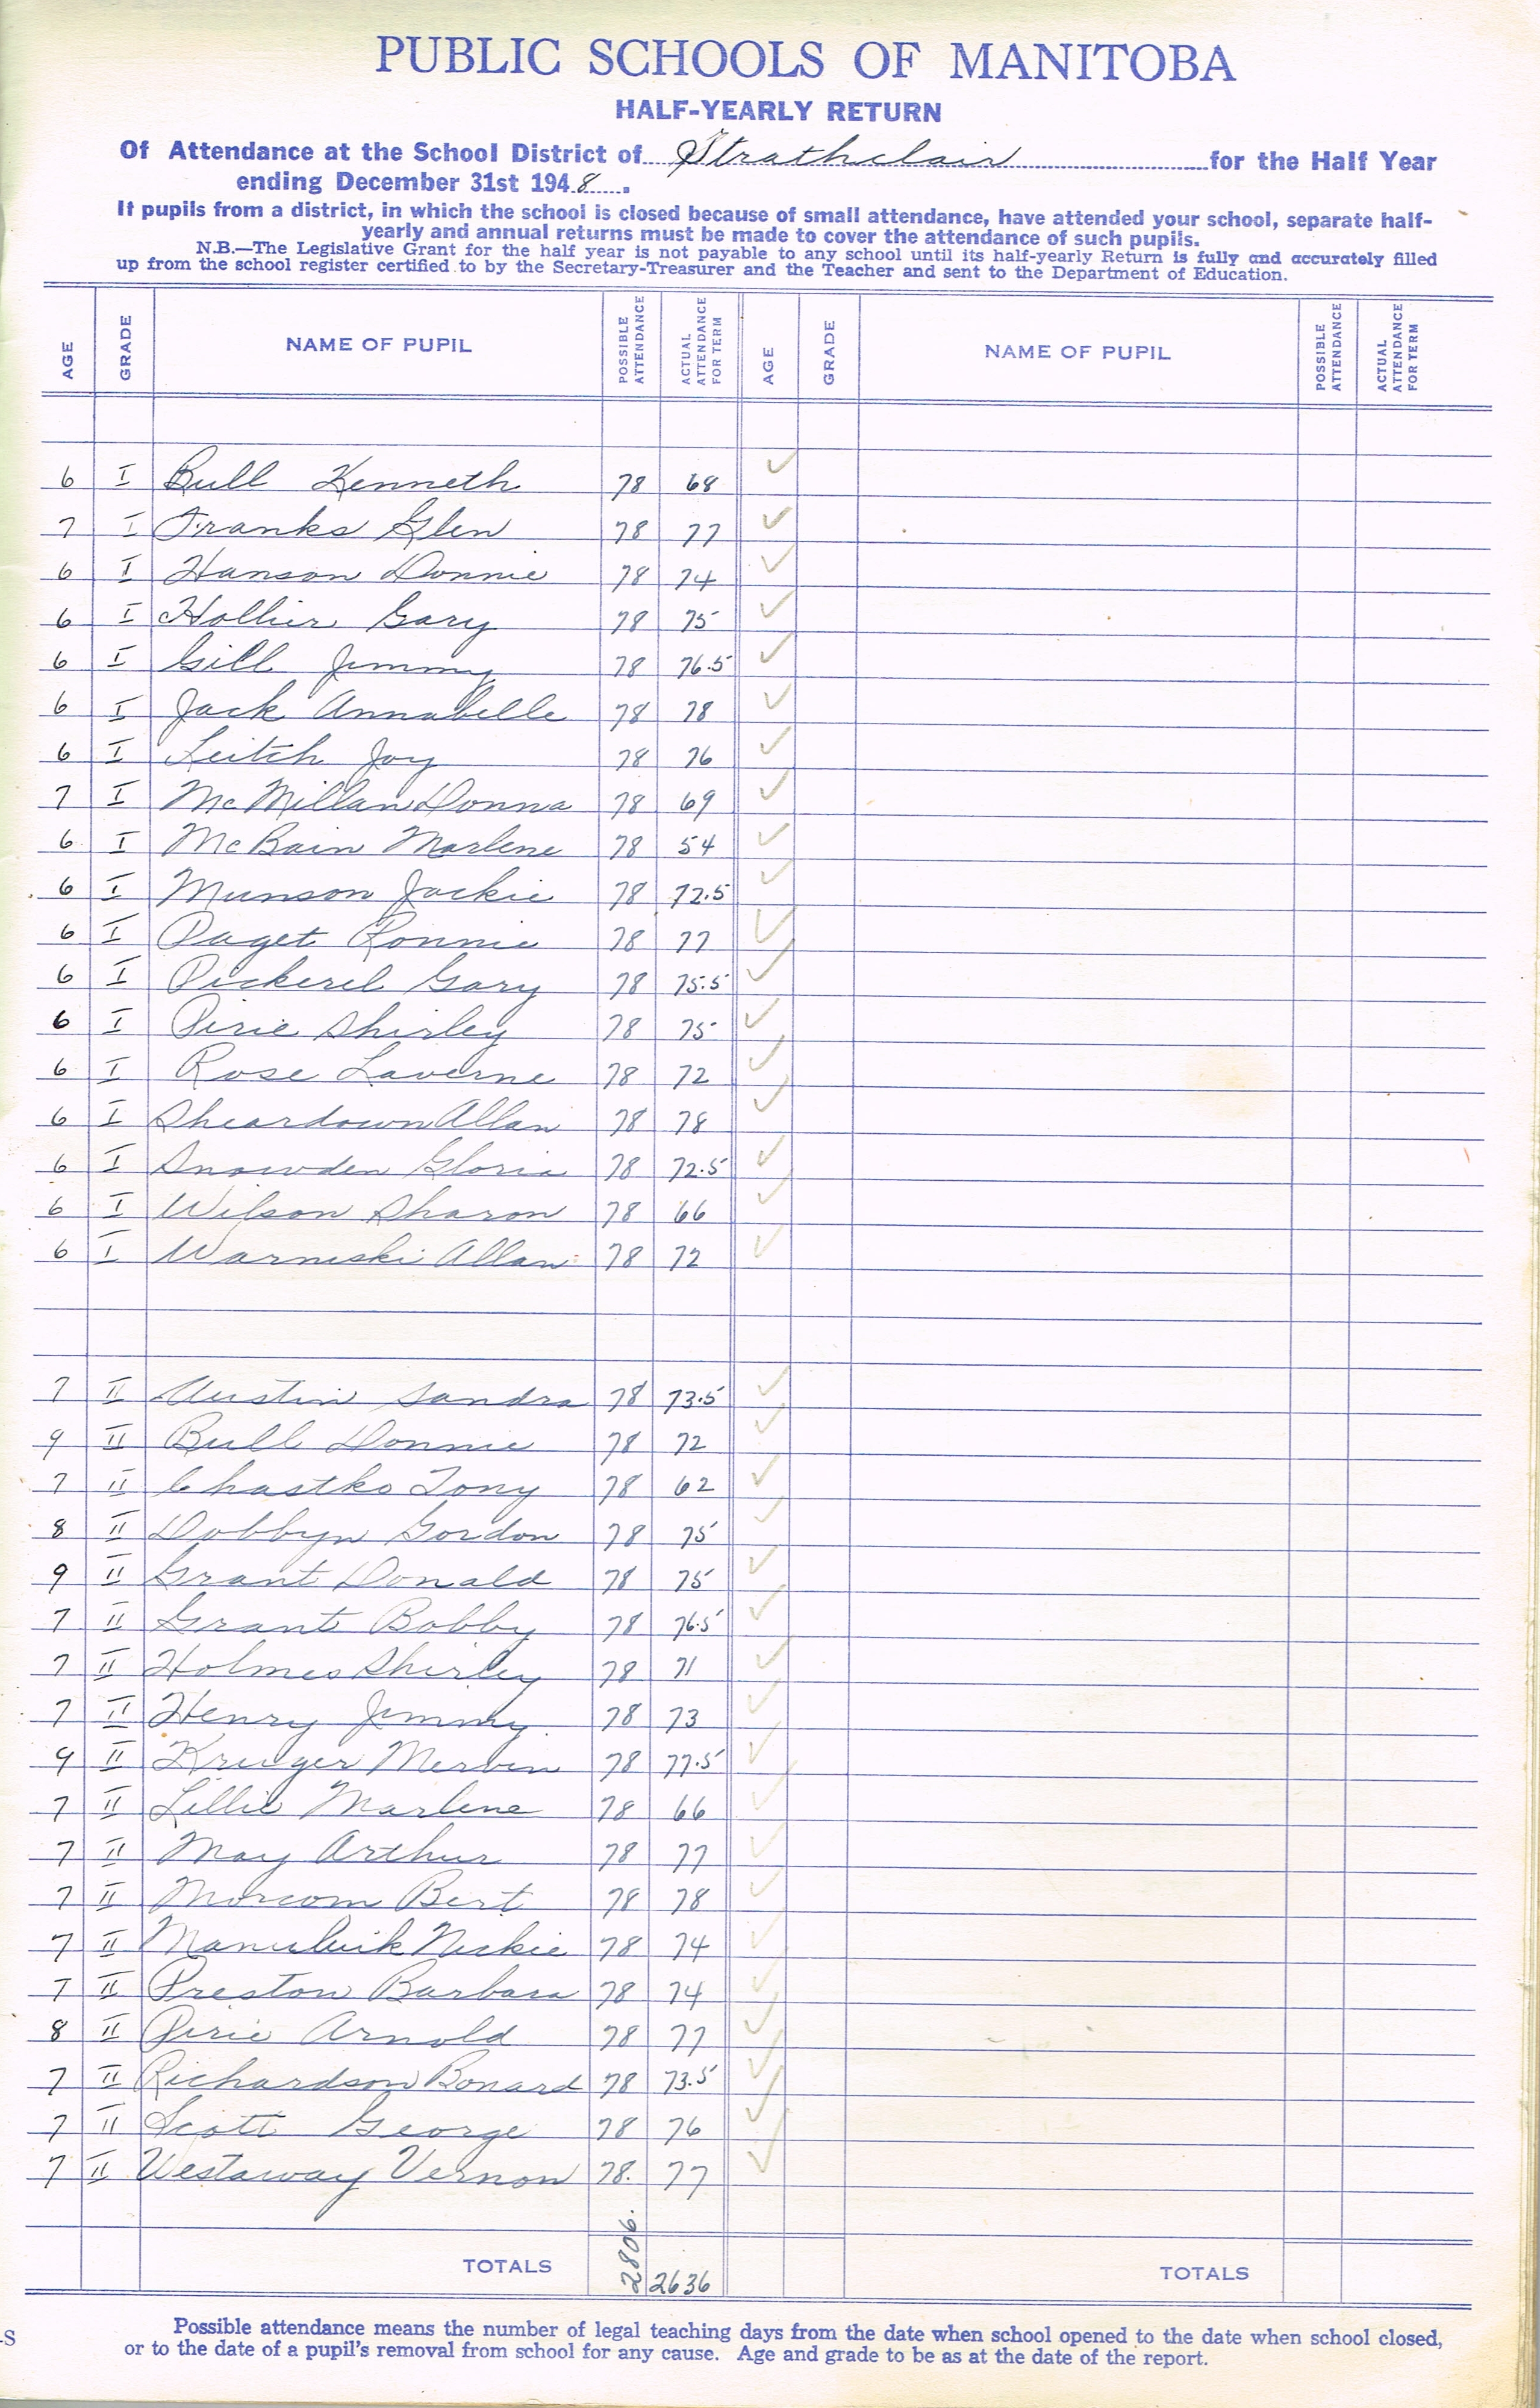 PUBLIC SCHOOLS OF MANITOBA
HALF-YEARLY RETURN
Of Attendance at the School District of Strathclair for the Half Year
ending December 31st 1948.
If pupils from a district, in which the school is closed because of small attendance, have attended your school, separate half-
yearly and annual returns must be made to cover the attendance of such pupils.
N.B.—The Legislative Grant for the half year is not payable to any school until its half-yearly Return is fully and accurately filled
up from the school register certified to by the Secretary-Treasurer and the Teacher and sent to the Department of Education.
AGE GRADE NAME OF PUPIL POSSIBLE ATTENDANCE ACTUAL ATTENDANCE FOR TERM AGE GRADE NAME OF PUPIL POSSIBLE ATTENDANCE ACTUAL ATTENDANCE FOR TERM
6 I Bull Kenneth 78 68 ✓
7 I Franks Glen 78 77 ✓
6 I Hanson Donnie 78 74 ✓
6 I Hollier Gary 78 75 ✓
6 I Gill Jimmy 78 76.5 ✓
6 I Jack Annabelle 78 78 ✓
6 I Leitch Joy 78 76 ✓
7 I McMillan Donna 78 69 ✓
6 I McBain Marlene 78 54 ✓
6 I Munson Jackie 78 72.5 ✓
6 I Paget Ronnie 78 77 ✓
6 I Pickerel Gary 78 75.5 ✓
6 I Pirie Shirley 78 75 ✓
6 I Rose Laverne 78 72 ✓
6 I Sheardown Allan 78 78 ✓
6 I Snowden Gloria 78 72.5 ✓
6 I Wilson Sharon 78 66 ✓
6 I Warneski Allan 78 72 ✓
7 II Austin Sandra 78 73.5 ✓
9 II Bull Donnie 78 72 ✓
7 II Chastko Tony 78 62 ✓
8 II Dobbyn Gordon 78 75 ✓
9 II Grant Donald 78 75 ✓
7 II Grant Bobby 78 76.5 ✓
7 II Holmes Shirley 78 71 ✓
7 II Henry Jimmy 78 73 ✓
9 II Kruger Mervin 78 77.5 ✓
7 II Lillie Marlene 78 66 ✓
7 II May Arthur 78 77 ✓
7 II Morcom Bert 78 78 ✓
7 II Nickie 78 74 ✓
7 II Preston Barbara 78 74 ✓
8 II Pirie Arnold 78 77 ✓
7 II Richardson Bonard 78 73.5 ✓
7 II Scott George 78 76 ✓
7 II Westaway Vernon 78. 77 ✓
TOTALS 2806. 2636 TOTALS
Possible attendance means the number of legal teaching days from the date when school opened to the date when school closed,
or to the date of a pupil's removal from school for any cause. Age and grade to be as at the date of the report.
-S